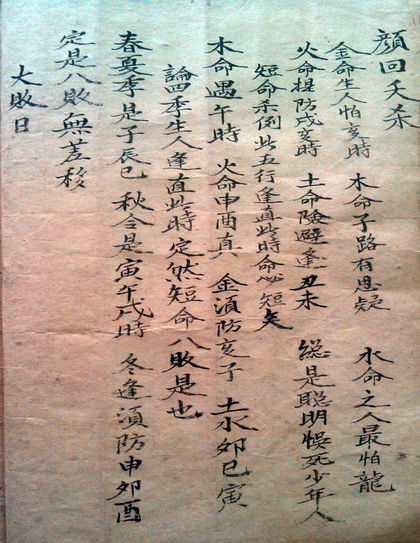 顔回夭杀
金命生人怕亥時 木命子路有思疑 水命之人最怕龍
火命提防戌亥時 土命險避逢丑未 総是聪明悞死少年人
短命杀倒此五行逢直此時命必短矣
木命遇午時 火命申酉真 金須防亥子 土水卯巳寅
論四季生人逢直此時定然短命八敗是也
春夏季是子辰巳 秋令是寅午戌時 冬逢須防申卯酉
定是八敗無差移
大敗日